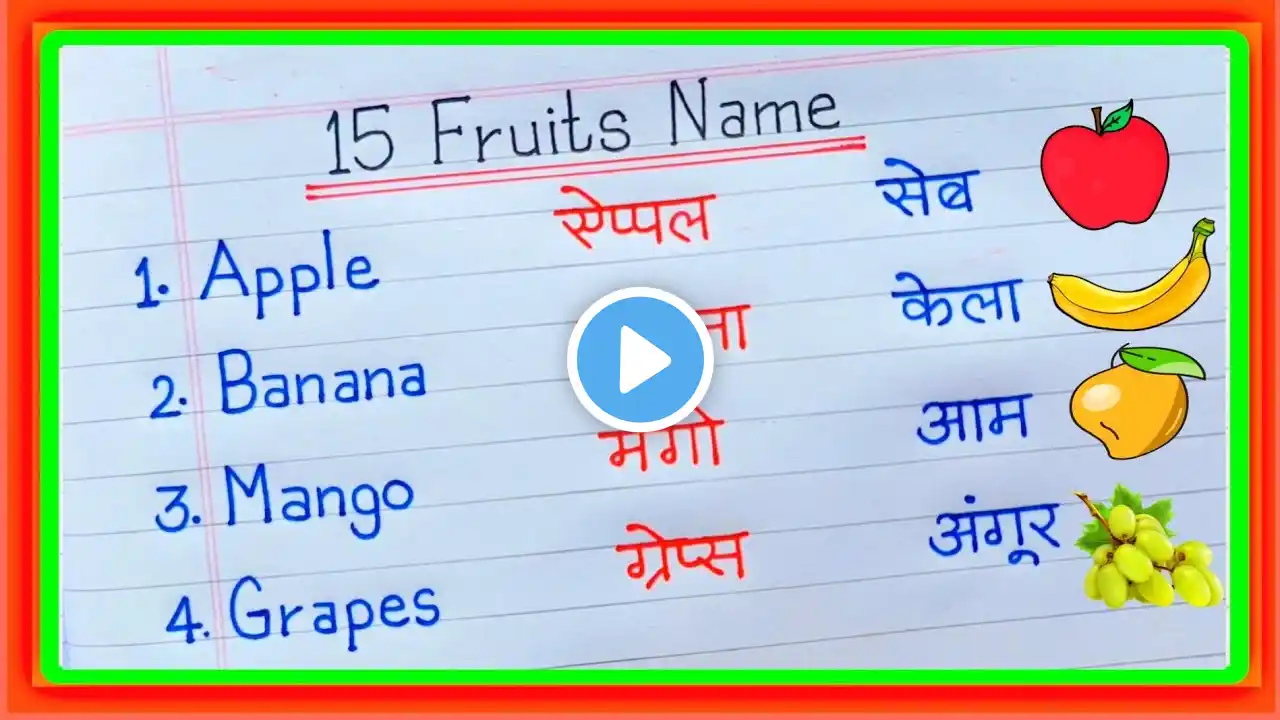 15 Fruits Name
1. Apple ऐप्पल सेब
2. Banana केला
3. Mango आम
4. Grapes ग्रेप्स अंगूर